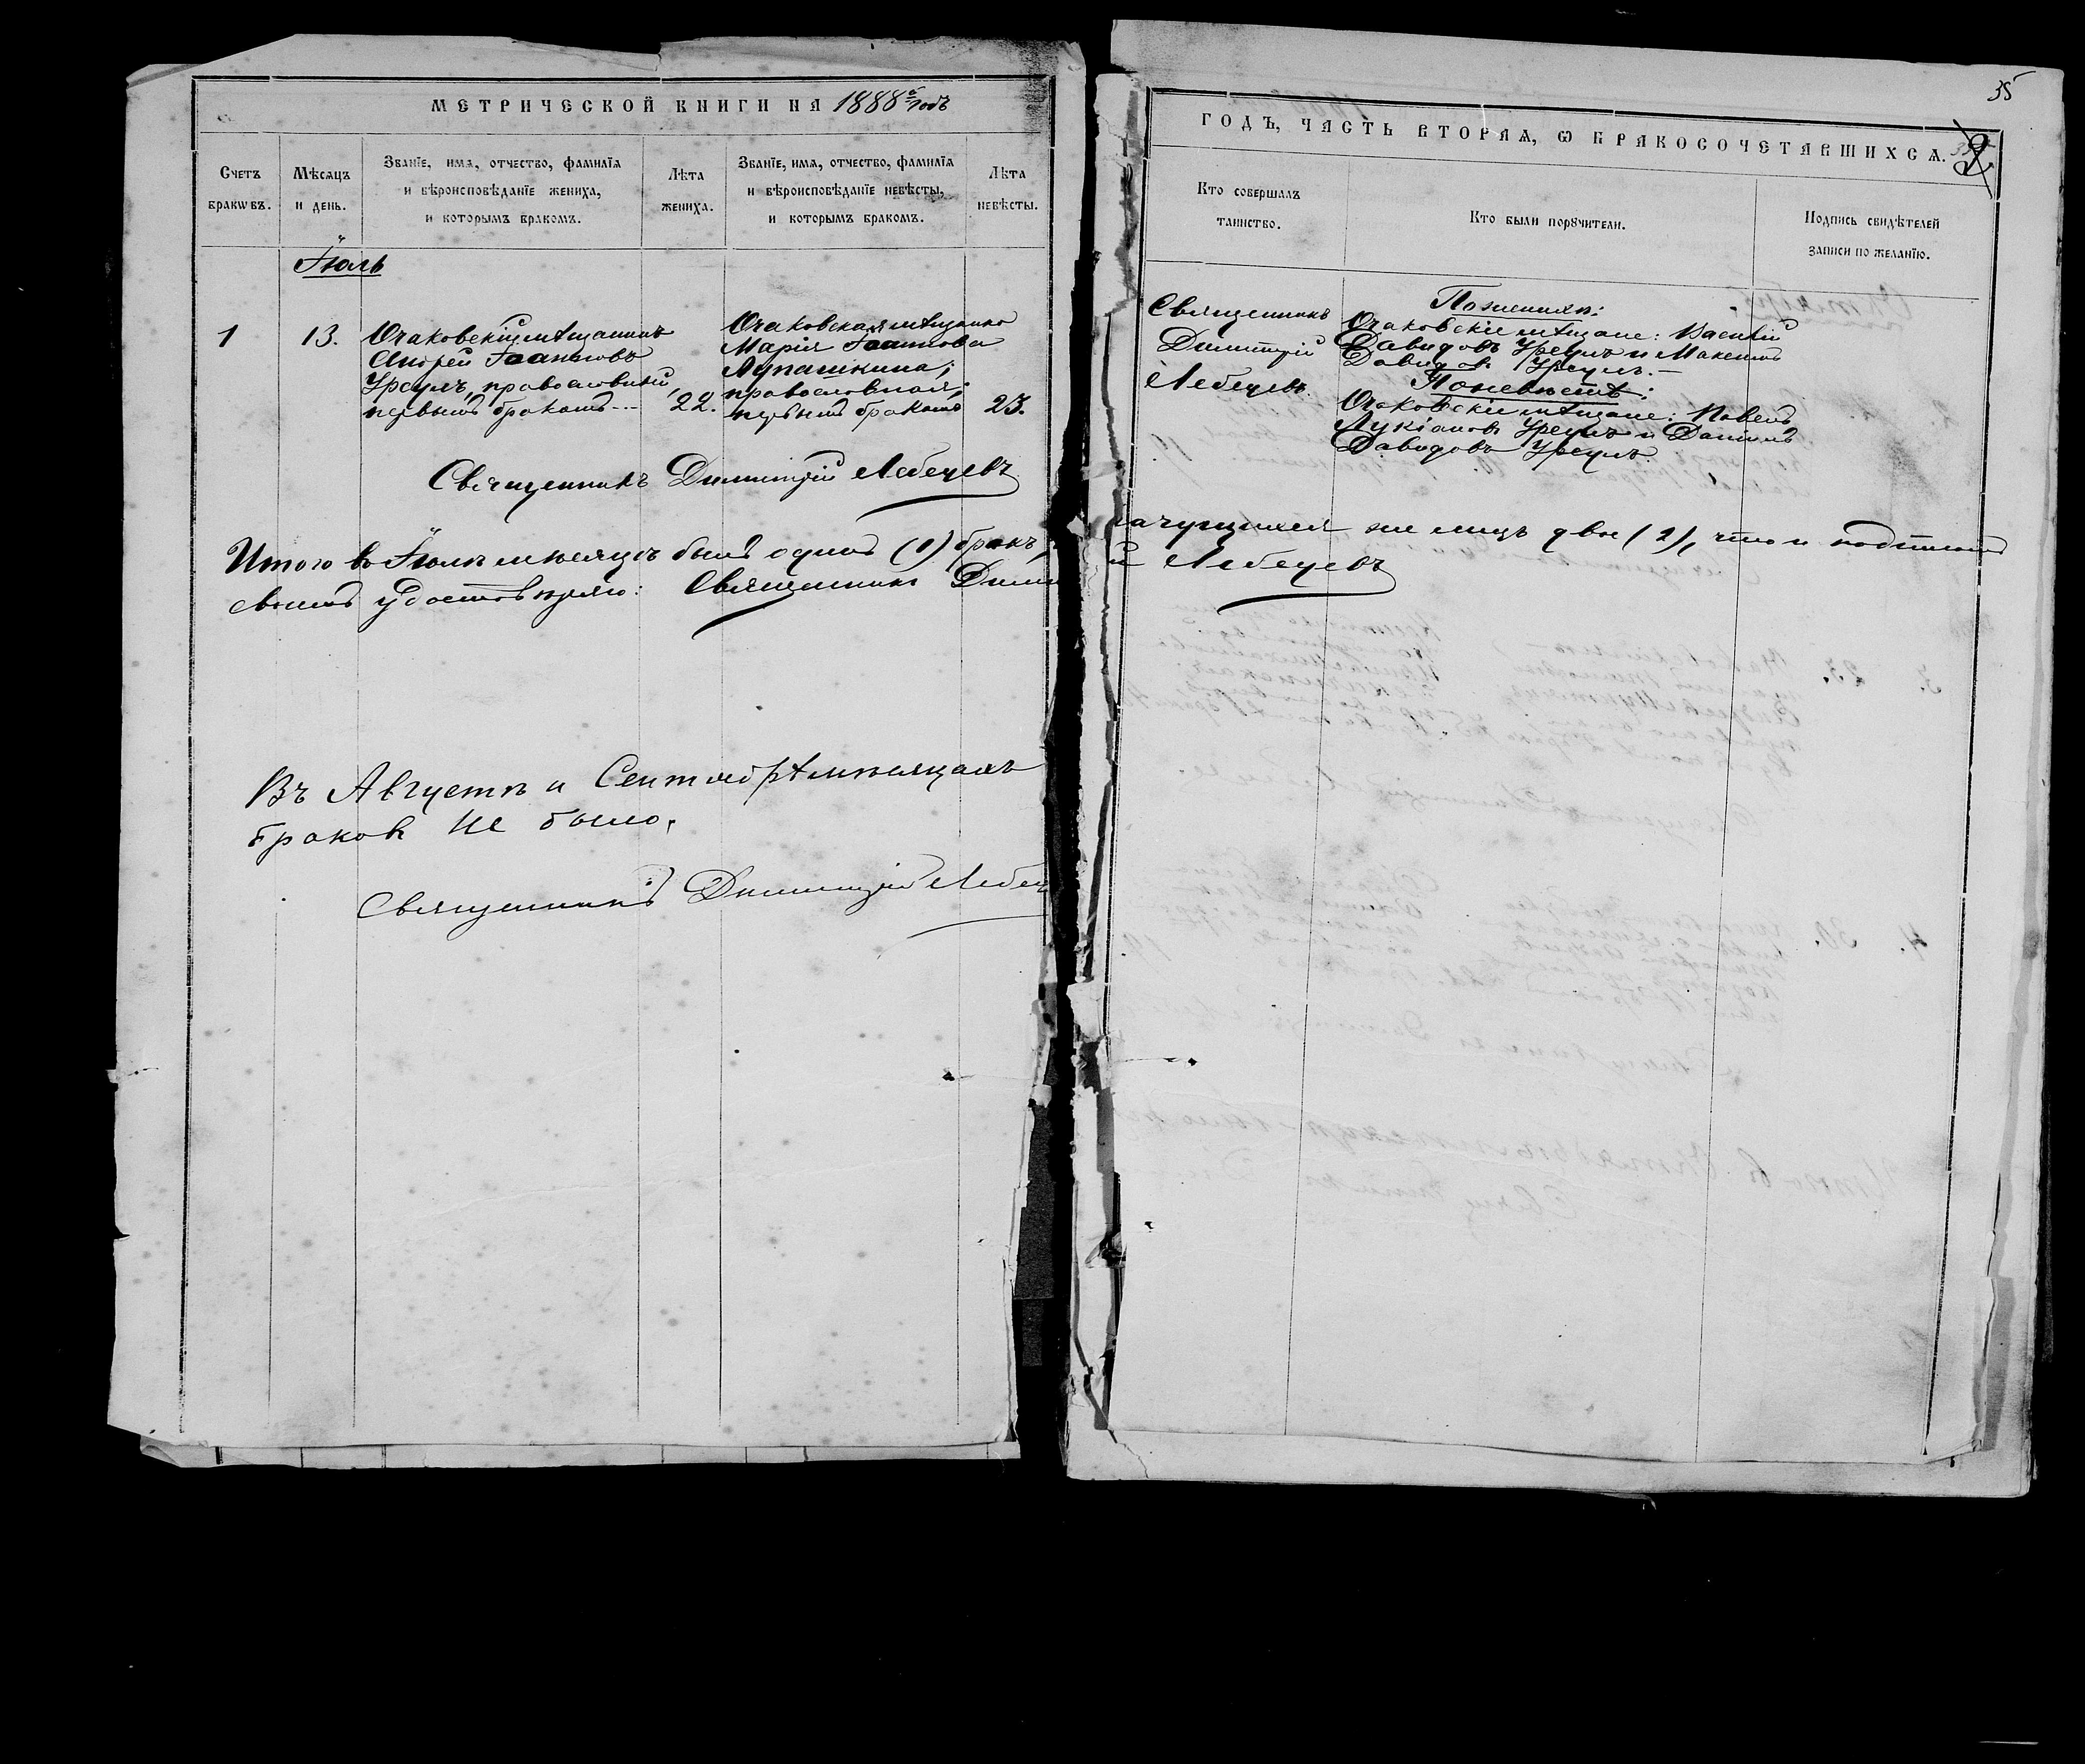 МЕТРИЧЕСКОЙ КНИГИ НА 1888й годъ
Счетъ браковъ.
Мѣсяцъ и день.
Званїе, имя, отчество, фамилїя
и вѣроисповѣданїе жениха,
и которымъ бракомъ.
Лѣта
жениха.
Званїе, имя, отчество, фамилїя
и вѣроисповѣданїе невѣсты,
и которымъ бракомъ.
Лѣта
невѣсты.
Іюль
1
13.
Очаковскій мѣщанинъ
Андрей Іоанновъ
Урсулъ, православный,
первымъ бракомъ
22.
Очаковская мѣщанка
Марія Іоаннова
Лупашкина,
православная,
первымъ бракомъ
23.
Священникъ Димитрій Лебедевъ
Итого въ Іюлѣ мѣсяцѣ былъ одинъ (1) бракъ,
своимъ удостовѣряю: Священникъ Дими
Въ Августѣ и Сентябрѣ мѣсяцахъ
браковъ не было.
Священникъ Димитрій Лебед
35
ГОДЪ, ЧАСТЬ ВТОРАЯ, Ѡ БРАКОСОЧЕТАВШИХСЯ.
Кто совершалъ
таинство.
Кто были порꙋчители.
Подпись свидѣтелей
записи по желанїю.
Священникъ
Димитрій
Лебедевъ.
По женихѣ:
Очаковскіе мѣщане: Василій
Давидовъ Урсулъ и Максимъ
Давидовъ Урсулъ.
По невѣстѣ:
Очаковскіе мѣщане: Павелъ
Лукіановъ Урсулъ и Даніилъ
Давидовъ Урсулъ.
же лицъ двое (2), что и подписомъ
й Лебедевъ